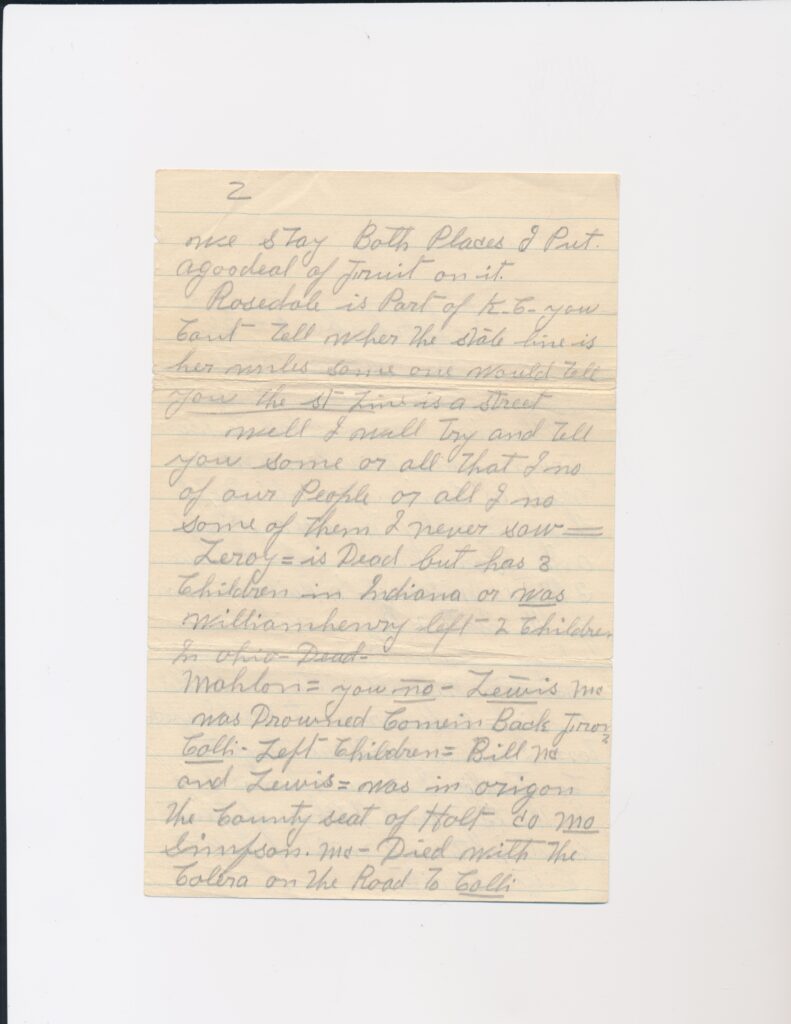 2
we stay Both Places I Put
agoodeal of Fruit on it.
Rosedale is Part of K.C- you
Cant Tell wher the state line is
her unles some one would Tell
you the st Line is a street
well I will Try and Tell
you some or all That I no
of our People or all I no
some of Them I never saw =
Leroy = is Dead but has 3
Children in Indiana or was
Williamhenry left - 2 Children
In ohio - Dead -
Mahlon = you no - Lewis Mc
was Drowned Comein Back From
Calli - Left Children = Bill Mc
and Lewis = was in origon
The County seat of Holt Co Mo
Simpson. Mc - Died with The
Colera on The Road To Calli